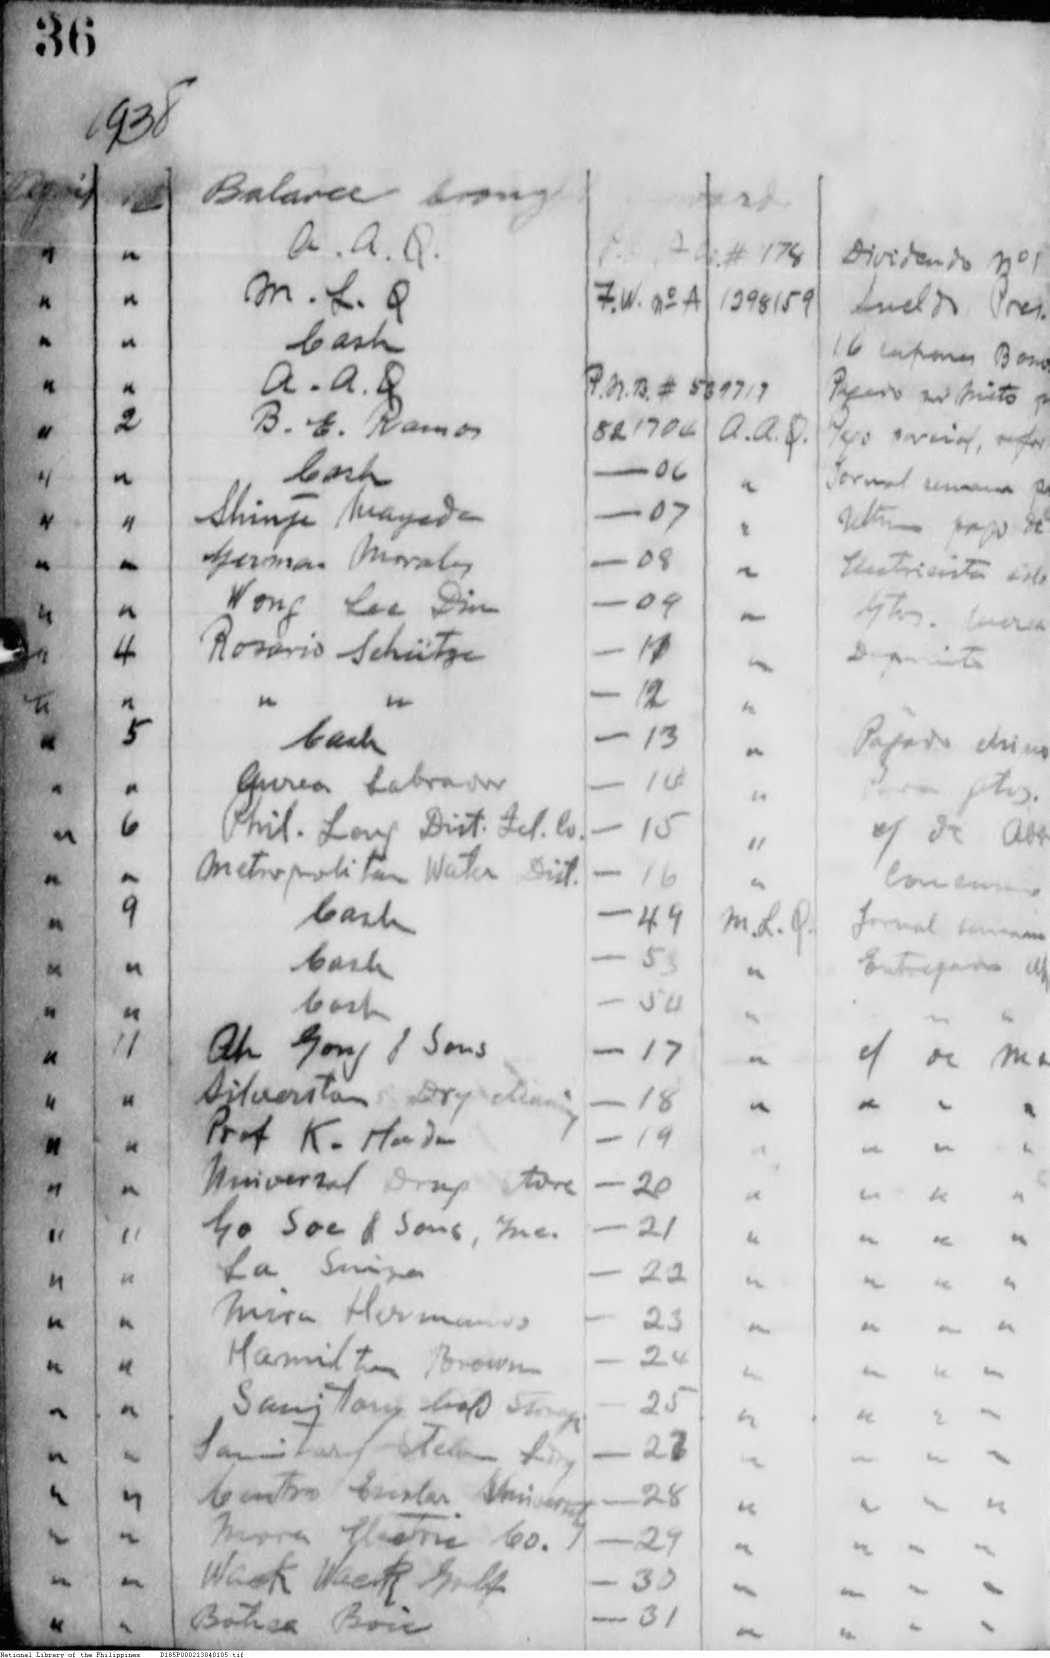 36
1938
April Balance
" " A. A. Q. # 178 Dividendo nº 1
" " M. L. Q F.W. nº A 1298159 Sueldo Pres.
" " Cash 16 cupones Bonos
" " A. A. Q P.N.B. # 569717 Pagado
" 2 B. E. Ramos 821704 A. A. Q.
" " Cash — 06 " Jornal semana
" " Shinje Mayeda — 07 " pago de
" " German Morales — 08 " Electricista
" " Wong Lee Din — 09 " Gtos.
" 4 Rosario Schütze — 11 " Deposito
" " " " — 12 "
" 5 Cash — 13 " Pagado chino
" " Aurea Labrador — 14 " Para gtos.
" 6 Phil. Long Dist. Tel. Co. — 15 " c/ de Abr
" " Metropolitan Water Dist. — 16 " Consumo
" 9 Cash — 49 M. L. Q. Jornal semana
" " Cash — 53 " Entregado
" " Cash — 54 " " "
" 11 Ah Gong & Sons — 17 " c/ de Ma
" " Silverstar Dry Cleaning — 18 " " " "
" " Prof K. Hada — 19 " " " "
" " Universal Drug Store — 20 " " " "
" " Go Soc & Sons, Inc. — 21 " " " "
" " La Suiza — 22 " " " "
" " Mira Hermanos — 23 " " " "
" " Hamilton Brown — 24 " " " "
" " Sanitary Cold Storage — 25 " " " "
" " Sanitary Steam Ldry — 27 " " " "
" " Centro Escolar University — 28 " " " "
" " Mora Electric Co. — 29 " " " "
" " Wack Wack Golf — 30 " " " "
" " Botica Boie — 31 " " " "
National Library of the Philippines D185P000213040105.tif